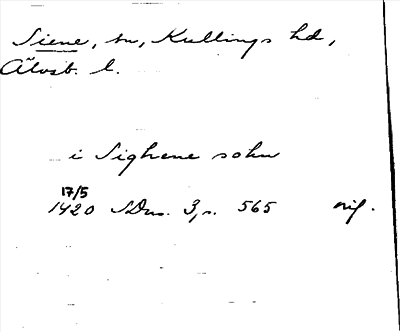 Siene, sn, Kullings hd,
Älvsb. l.
i Sighene sokn
17/5
1420 SDns. 3, s. 565 rif.